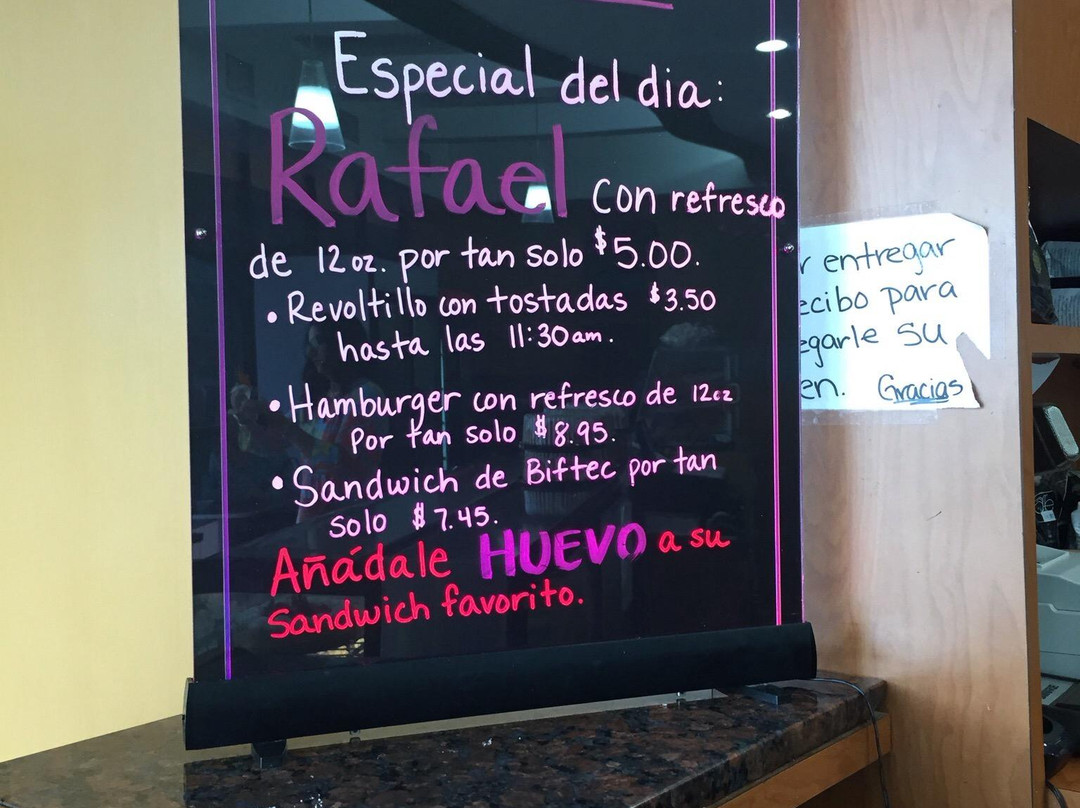 Especial del dia:
Rafael con refresco
de 12 oz. por tan solo $5.00.
• Revoltillo con tostadas $3.50
hasta las 11:30am.
• Hamburger con refresco de 12oz
Por tan solo $8.95.
• Sandwich de Biftec por tan
solo $7.45.
Añádale HUEVO a su
Sandwich favorito.
r entregar
ecibo para
egarle su
en. Gracias